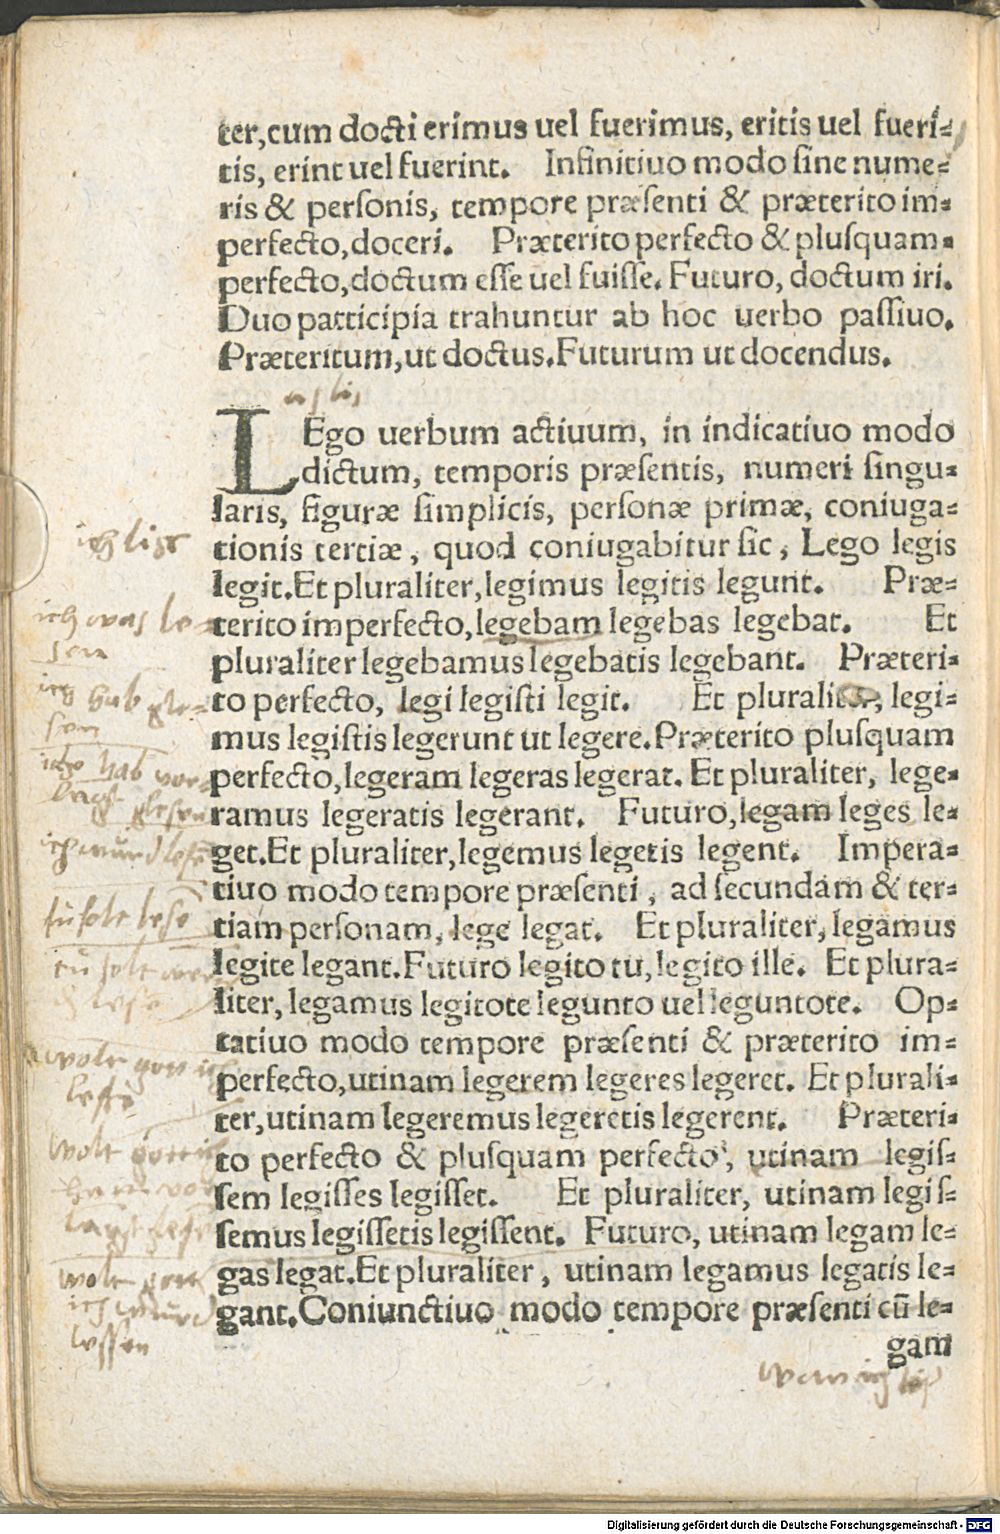 ter,cum docti erimus uel fuerimus, eritis uel fueri⸗
tis, erint uel fuerint. Infinitiuo modo sine nume⸗
ris & personis, tempore præsenti & præterito im⸗
perfecto,doceri. Præterito perfecto & plusquam⸗
perfecto,doctum esse uel fuisse. Futuro, doctum iri.
Duo participia trahuntur ab hoc uerbo passiuo.
Præteritum,ut doctus.Futurum ut docendus.
LEgo uerbum actiuum, in indicatiuo modo
dictum, temporis præsentis, numeri singu⸗
laris, figuræ simplicis, personæ primæ, coniuga⸗
ich lise
tionis tertiæ, quod coniugabitur sic, Lego legis
legit.Et pluraliter,legimus legitis legunt. Præ⸗
ich was le⸗
terito imperfecto,legebam legebas legebat. Et
sen
pluraliter legebamus legebatis legebant. Præteri⸗
ich hab gle⸗
to perfecto, legi legisti legit. Et pluraliter, legi⸗
sen
mus legistis legerunt ut legere.Præterito plusquam
ich hab vor
perfecto,legeram legeras legerat. Et pluraliter, lege⸗
langst glesen
ramus legeratis legerant. Futuro,legam leges le⸗
ich wurd lesē
get.Et pluraliter,legemus legetis legent. Impera⸗
tiuo modo tempore præsenti, ad secundam & ter⸗
tu solt lesē
tiam personam, lege legat. Et pluraliter, legamus
legite legant.Futuro legito tu,legito ille. Et plura⸗
liter, legamus legitote legunto uel leguntote. Op⸗
tatiuo modo tempore præsenti & præterito im⸗
wolt
perfecto,utinam legerem legeres legeret. Et plurali⸗
ter,utinam legeremus legeretis legerent. Præteri⸗
wolt
to perfecto & plusquam perfecto, utinam legis⸗
sem legisses legisset. Et pluraliter, utinam legis⸗
semus legissetis legissent. Futuro, utinam legam le⸗
wolt gott
gas legat.Et pluraliter, utinam legamus legatis le⸗
ich wurd
gant.Coniunctiuo modo tempore præsenti cū le⸗
lessen
gam
wen ich lis
Digitalisierung gefördert durch die Deutsche Forschungsgemeinschaft - DFG